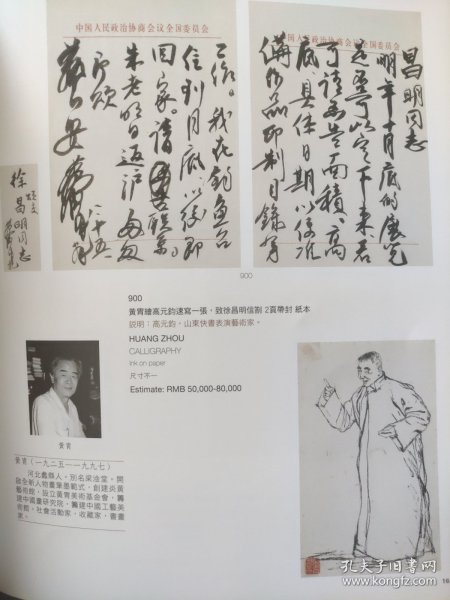 中国人民政治协商会议全国委员会
昌明同志
明年十月底的展览
是否可以定下来若
可请函告面积、高
底、具体日期以便准
备作品印制目录等
中国人民政治协商会议全国委员会
工作。我在钓鱼台
住到月底，以后即
回家。请
朱老明日返沪匆匆
即颂
徐昌明同志
900
900
黃冑繪高元鈞速寫一張，致徐昌明信劄 2頁帶封 紙本
說明：高元鈞，山東快書表演藝術家。
HUANG ZHOU
CALLIGRAPHY
Ink on paper
尺寸不一
Estimate: RMB 50,000-80,000
黃冑
黃冑（一九二五—一九九七）
河北蠡縣人，別名梁淦堂，開
啟全新人物畫筆墨範式，創建炎黃
藝術館，設立黃冑美術基金會，籌
建中國畫研究院，籌建中國工藝美
術館，社會活動家，收藏家，書畫
家。
孔夫子旧书网